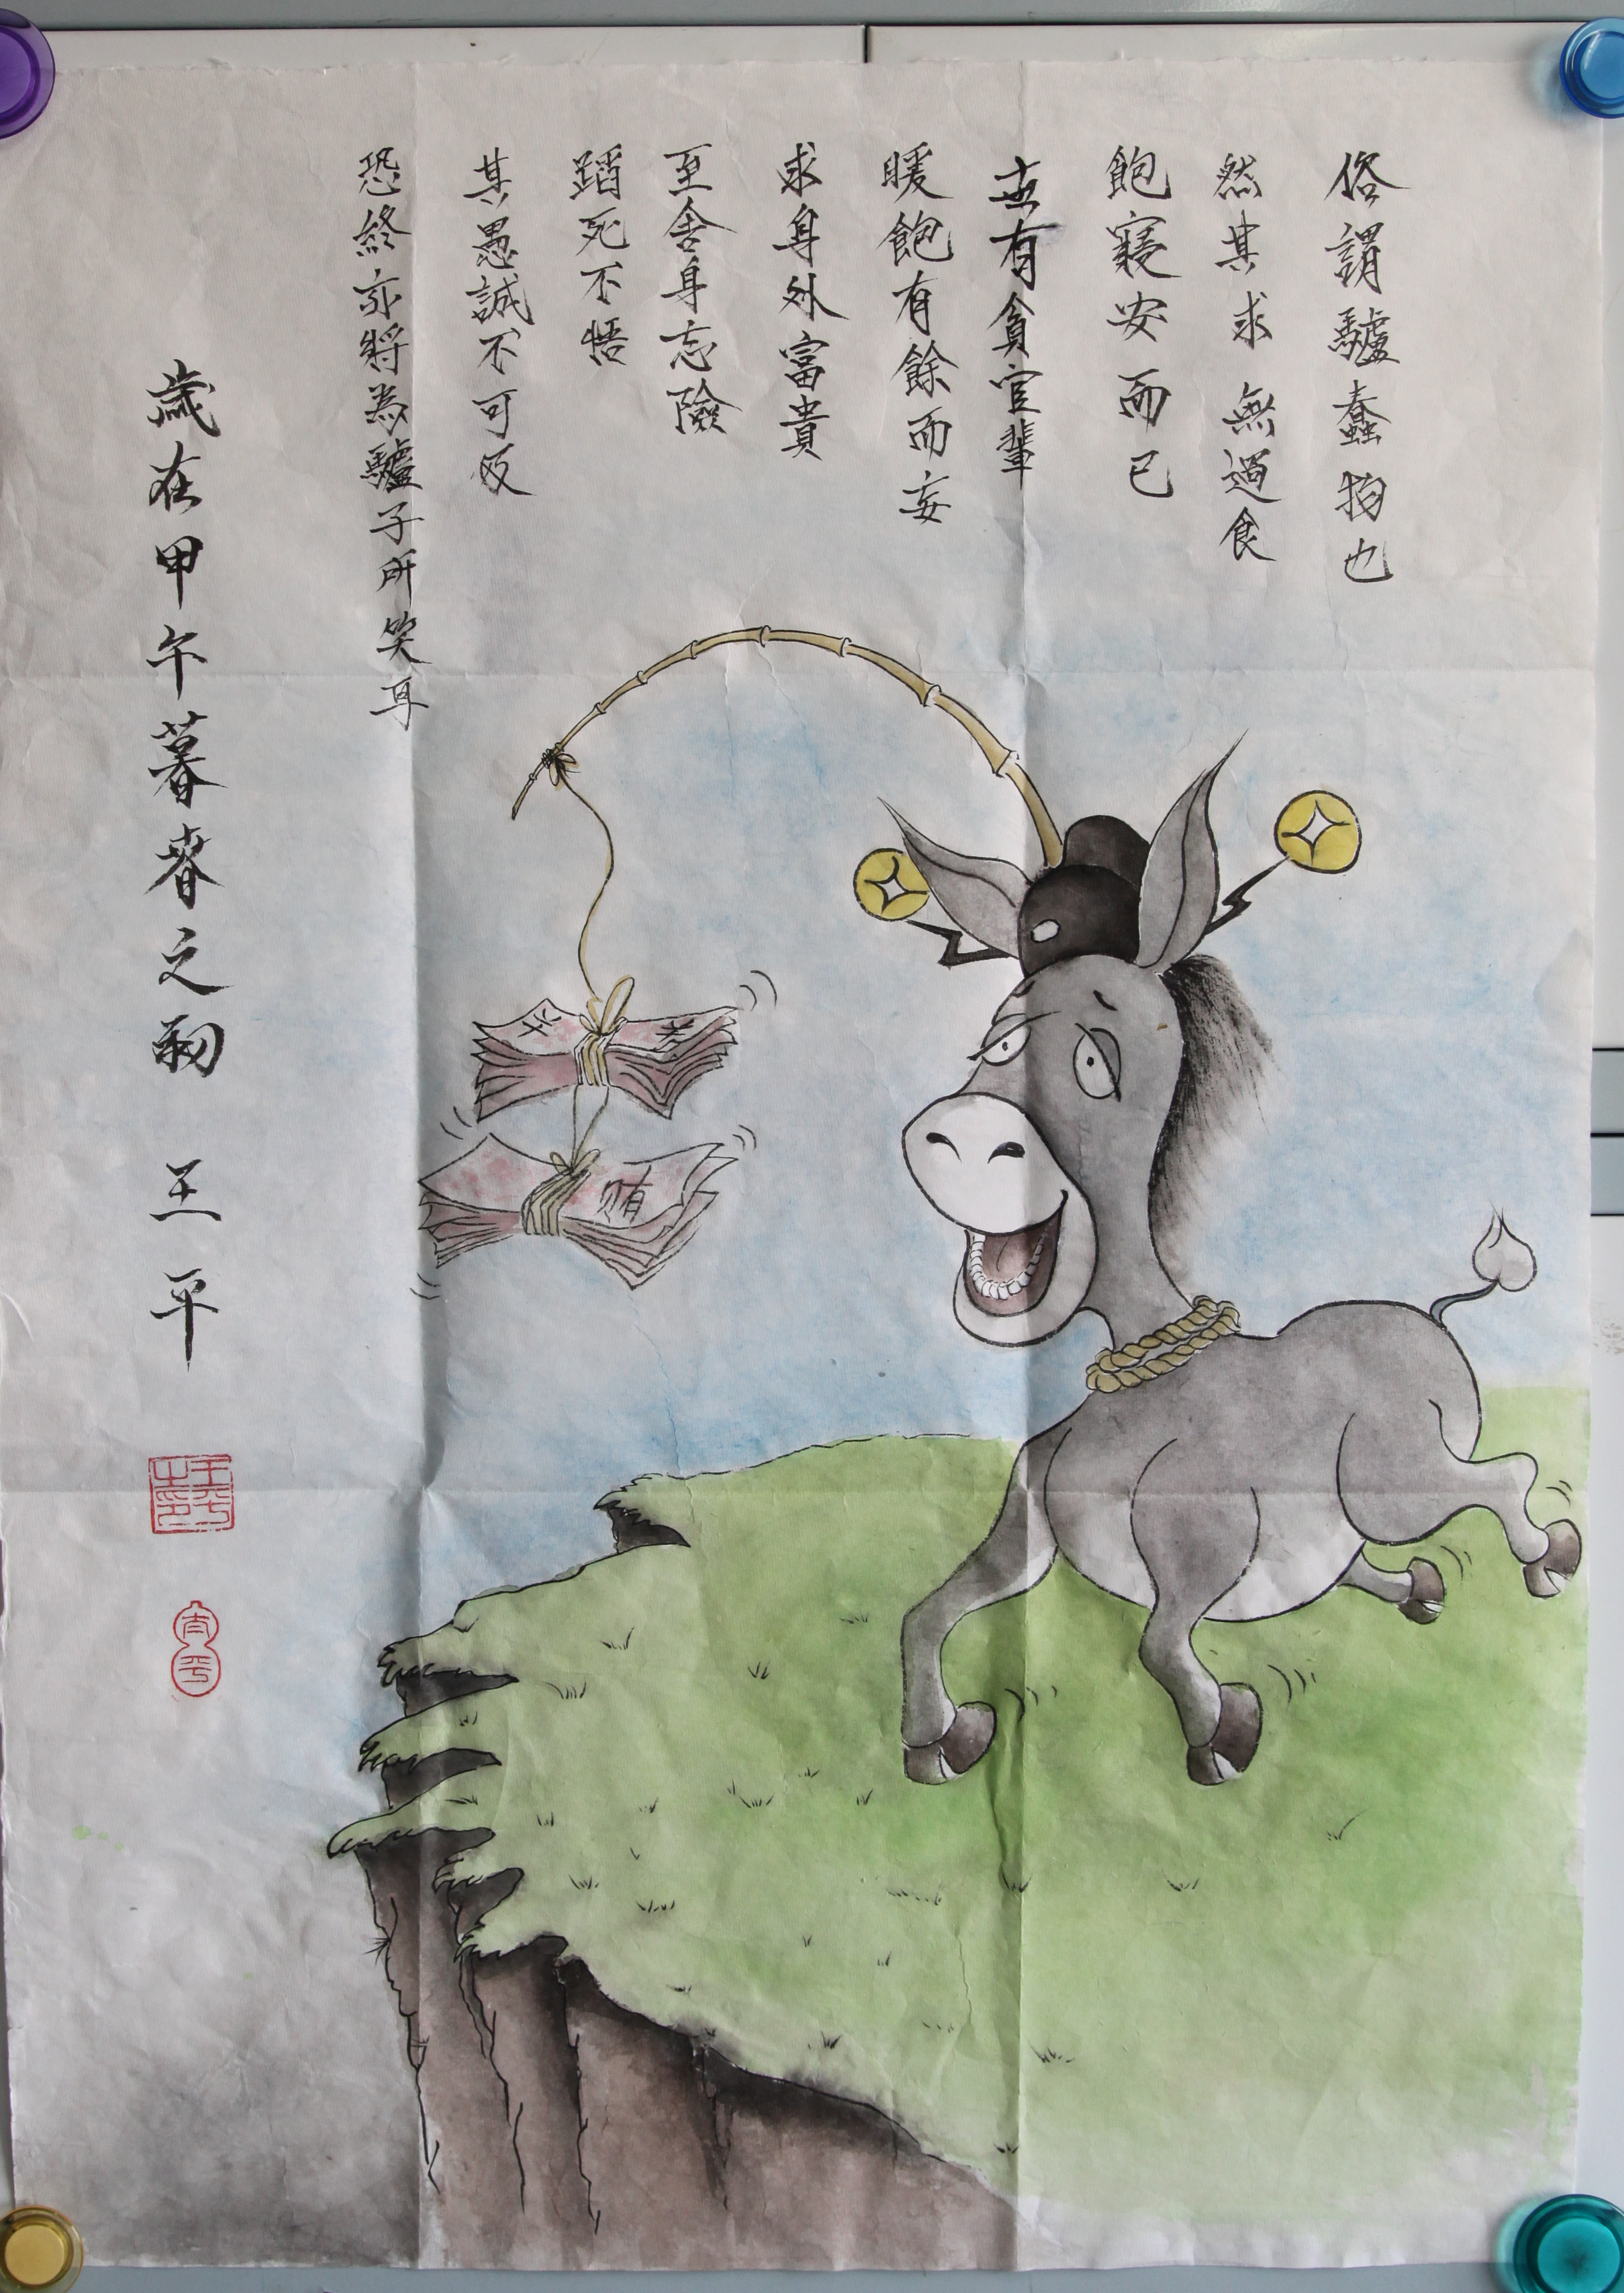 俗謂驢蠢物也
然其求無過食
飽寢安而已
世有貪官輩
暖飽有餘而妄
求身外富貴
至舍身忘險
蹈死不悟
其愚誠不可及
恐終亦將為驢子所笑耳
歲在甲午暮春之初 王平
贿
王平之印